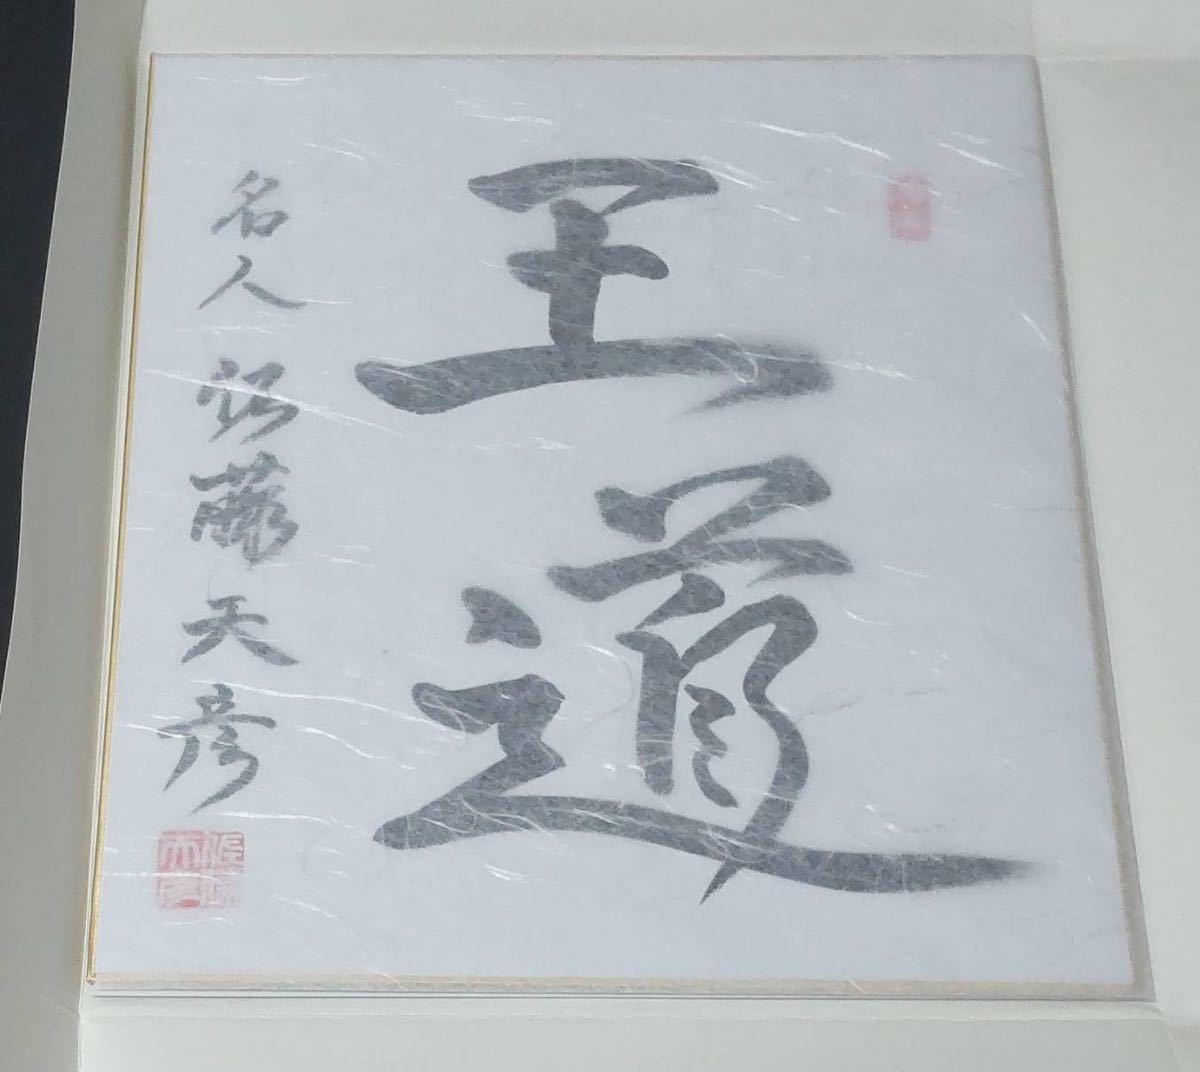 王道
名人 佐藤天彦